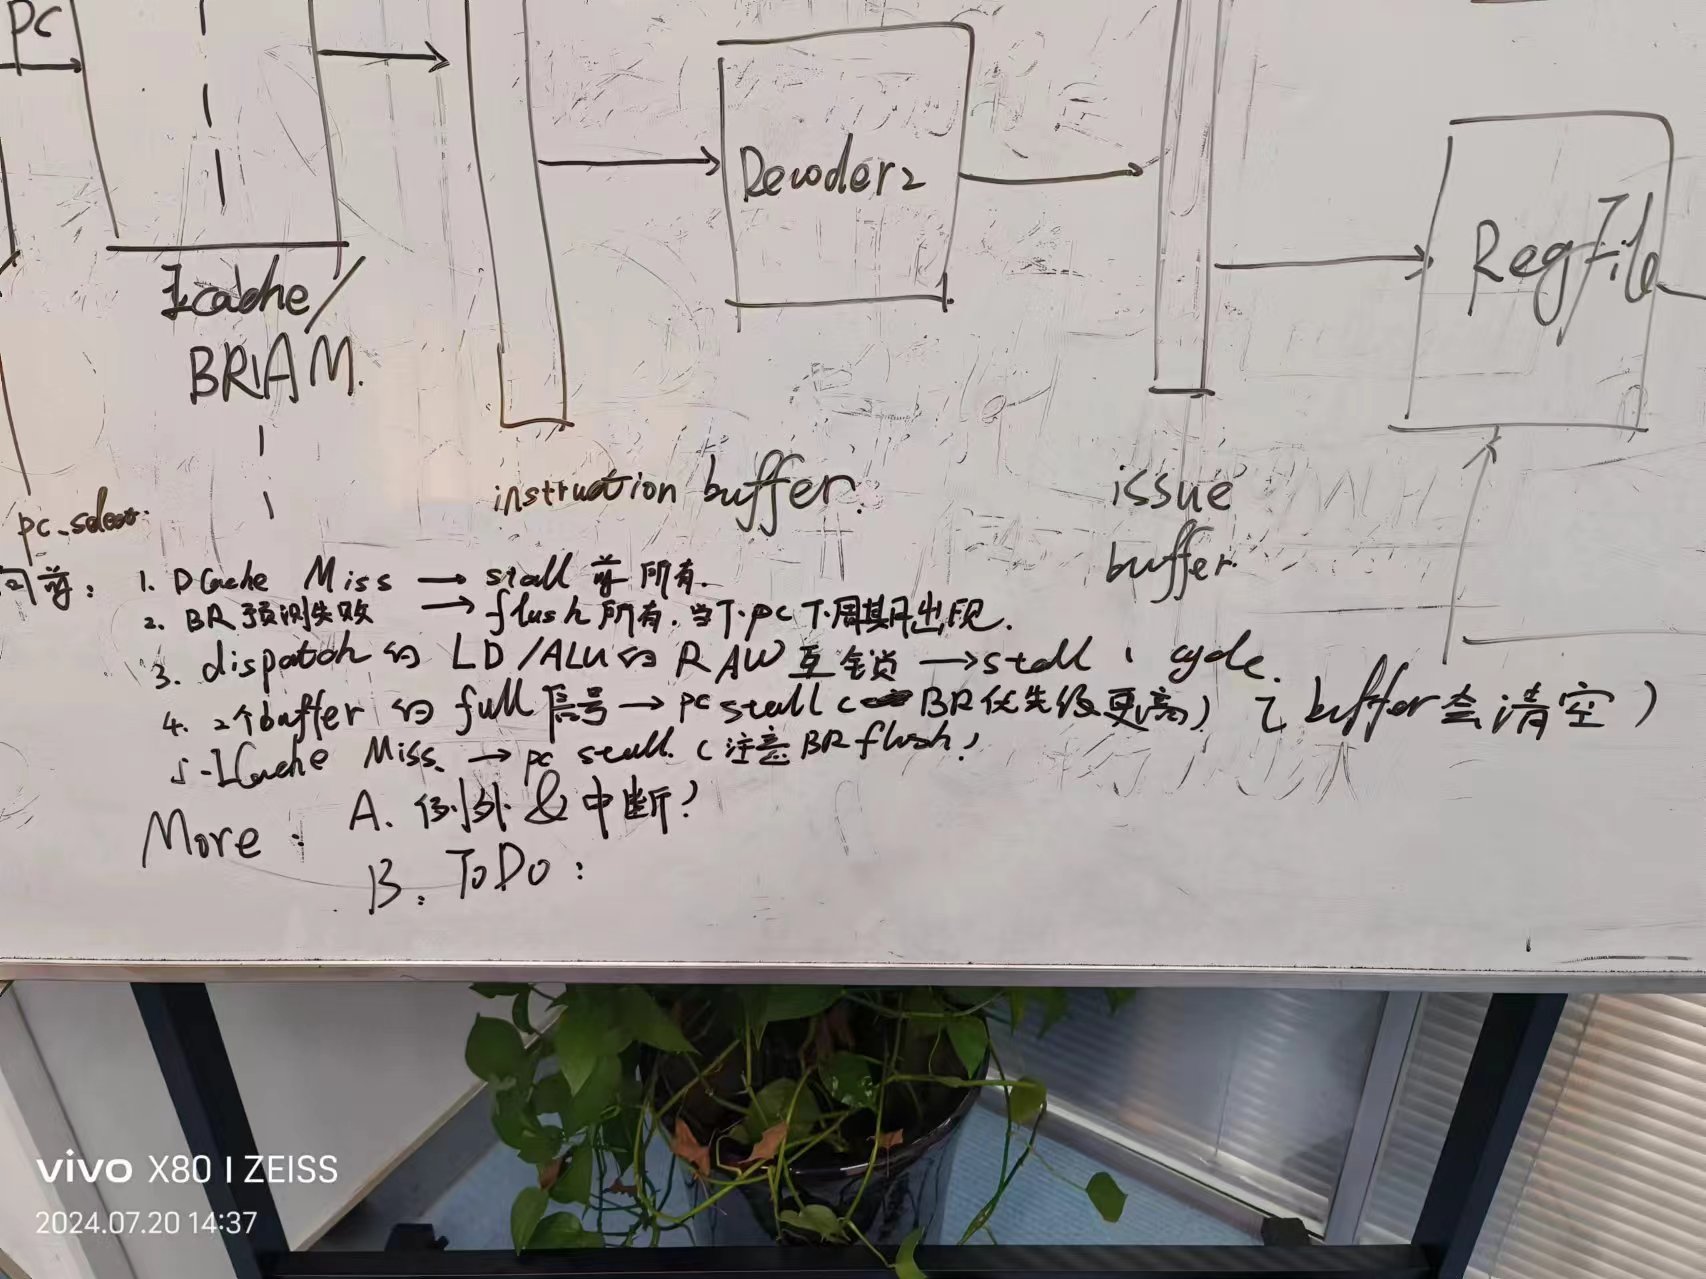 PC
Decoder2
RegFile
Icache/
BRAM.
instruction buffer.
issue
buffer.
pc_select
前：1. DCache Miss → stall 前 所有.
2. BR预测失败 → flush 所有. 当下PC下周期出现.
3. dispatch 的 LD/ALU 的 RAW 互锁 → stall 1 cycle.
4. 2个buffer 的 full 信号 → pc stall ( BR优先级更高) ( buffer会清空 )
5. ICache Miss. → pc stall. (注意BR flush)
More : A. 例外 & 中断?
B. ToDo :
vivo X80 | ZEISS
2024.07.20 14:37